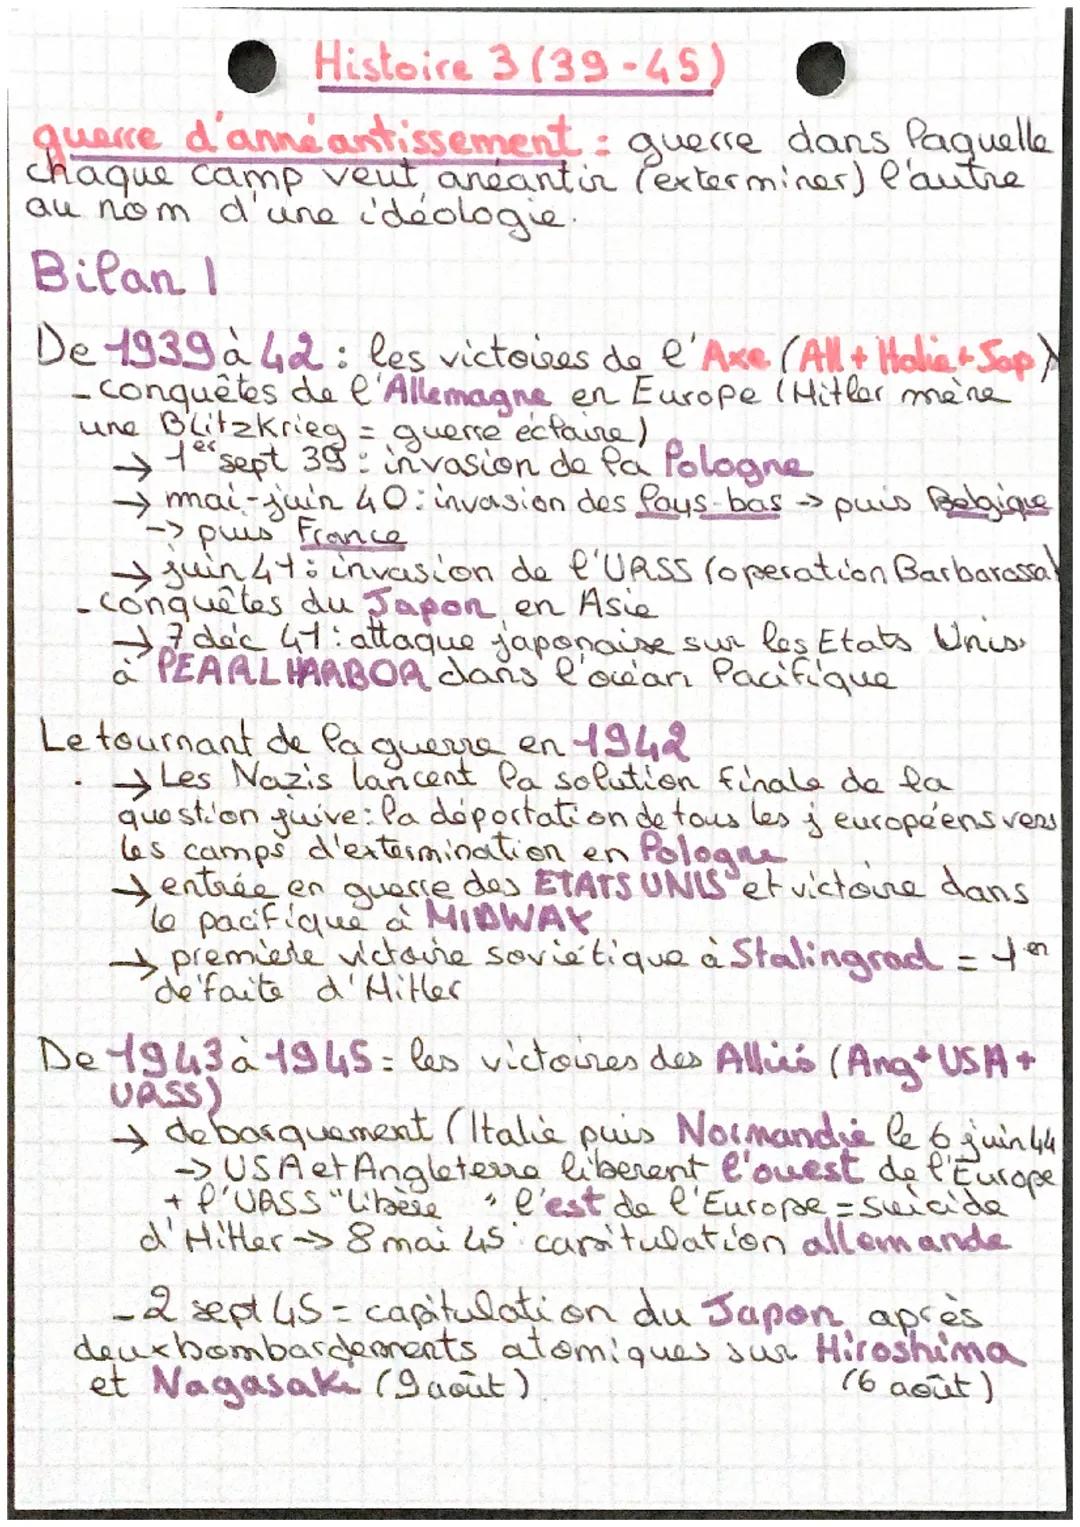 Histoire 3 (39-45)
guerre d'annéantissement : guerre dans laquelle
chaque camp veut anéantir (exterminer) l'autre
au nom d'une idéologie.
Bilan 1
De 1939 à 42 : les victoires de l'Axe (All + Italie + Jap)
- conquêtes de l'Allemagne en Europe (Hitler mène
une Blitzkrieg = guerre éclaire)
→ 1er sept 39 : invasion de la Pologne
→ mai-juin 40 : invasion des Pays-bas → puis Belgique
-> puis France
→ juin 41 : invasion de l'URSS (operation Barbarossa)
- conquêtes du Japon en Asie
→ 7 déc 41 : attaque japonaise sur les Etats Unis
à PEARL HARBOR dans l'océan Pacifique
Le tournant de la guerre en 1942
→ Les Nazis lancent la solution finale de la
question juive : la déportation de tous les j européens vers
les camps d'extermination en Pologne
→ entrée en guerre des ETATS UNIS et victoire dans
le pacifique à MIDWAY
→ premiere victoire soviétique à Stalingrad = 1er
défaite d'Hitler
De 1943 à 1945 = les victoires des Alliés (Ang + USA +
URSS)
→ debarquement (Italie puis Normandie le 6 juin 44
-> USA et Angleterre liberent l'ouest de l'Europe
+ l'URSS "libère" l'est de l'Europe = suicide
d'Hitler -> 8 mai 45 : capitulation allemande
- 2 sept 45 = capitulation du Japon après
deux bombardements atomiques sur Hiroshima
et Nagasaki (9 août) (6 août)